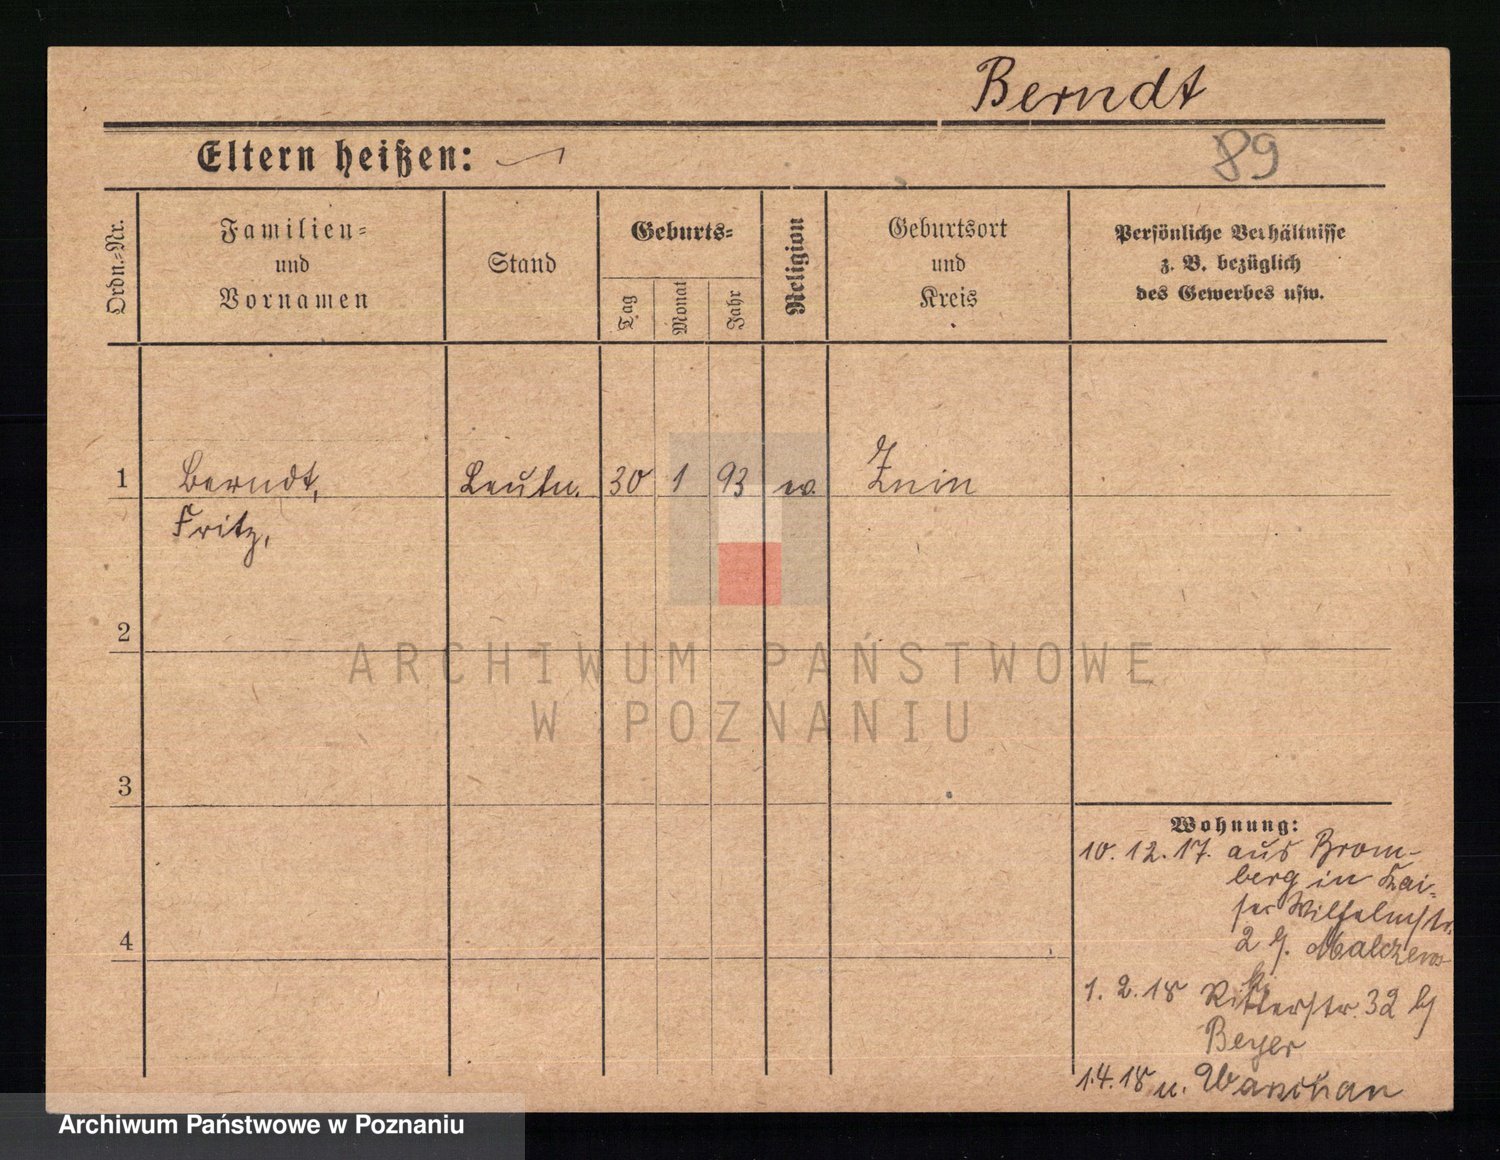 Berndt
Eltern heißen: 89
Ordn.-Nr.
Familien-
und
Vornamen
Stand
Geburts-
Tag
Monat
Jahr
Religion
Geburtsort
und
Kreis
Persönliche Verhältnisse
z. B. bezüglich
des Gewerbes usw.
1 Berndt, Leutn. 30 1 93 ev. Znin
Fritz,
2
ARCHIWUM PAŃSTWOWE
W POZNANIU
3
Wohnung:
10.12.17. aus Brom-
berg in Kai-
ser Wilhelmstr.
4
2 b. Malczews-
ki
1.2.18 Ritterstr. 32 b
Beyer
1.4.18 n. Warschau
Archiwum Państwowe w Poznaniu